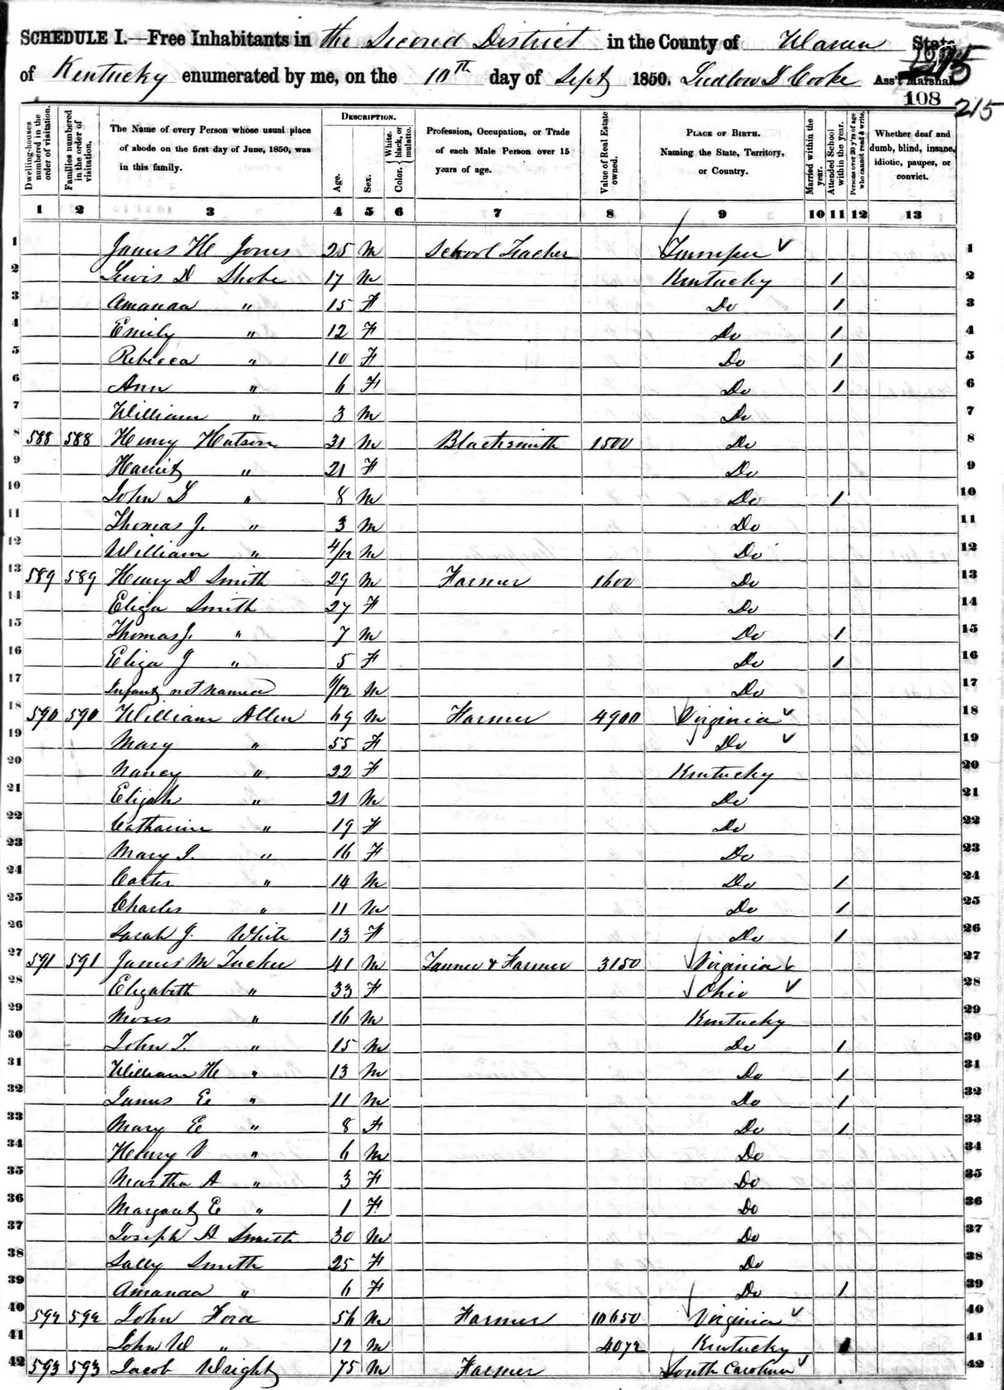 SCHEDULE I.—Free Inhabitants in the Second District in the County of Warren State
of Kentucky enumerated by me, on the 10th day of Sept 1850. Ludlow Cooke Ass't Marshal
108 215
Dwelling-houses numbered in the order of visitation. Families numbered in the order of visitation. The Name of every Person whose usual place of abode on the first day of June, 1850, was in this family. DESCRIPTION. Age. Sex. Color, White, black, or mulatto. Profession, Occupation, or Trade of each Male Person over 15 years of age. Value of Real Estate owned. PLACE OF BIRTH. Naming the State, Territory, or Country. Married within the year. Attended School within the year. Persons over 20 y'rs of age who cannot read & write. Whether deaf and dumb, blind, insane, idiotic, pauper, or convict.
1 2 3 4 5 6 7 8 9 10 11 12 13
1 James H Jones 25 M School Teacher Tennessee 1
2 Lewis D Shobe 17 M Kentucky 1 2
3 Amanda " 15 F Do 1 3
4 Emily " 12 F Do 1 4
5 Rebecca " 10 F Do 1 5
6 Ann " 6 F Do 1 6
7 William " 3 M Do 7
8 588 588 Henry Hutson 31 M Blacksmith 1500 Do 8
9 Harriet " 21 F Do 9
10 John " 8 M Do 1 10
11 Thomas J. " 3 M Do 11
12 William " 4/12 M Do 12
13 589 589 Henry D Smith 29 M Farmer 1600 Do 13
14 Eliza Smith 27 F Do 14
15 Thomas J. " 7 M Do 1 15
16 Eliza J " 5 F Do 1 16
17 Infant not named /12 M Do 17
18 590 590 William Allen 69 M Farmer 4900 Virginia 18
19 Mary " 55 F Do 19
20 Nancy " 22 F Kentucky 20
21 Elijah " 21 M Do 21
22 Catharine " 19 F Do 22
23 Mary " 16 F Do 23
24 Carter " 14 M Do 1 24
25 Charles " 11 M Do 1 25
26 Sarah J. White 13 F Do 1 26
27 591 591 James M Tucker 41 M Tanner & Farmer 3150 Virginia 27
28 Elizabeth " 33 F Ohio 28
29 Moses " 16 M Kentucky 29
30 John T. " 15 M Do 1 30
31 William H " 13 M Do 1 31
32 James E " 11 M Do 1 32
33 Mary E " 8 F Do 1 33
34 Henry V " 6 M Do 34
35 Martha A " 3 F Do 35
36 Margaret E " 1 F Do 36
37 Joseph Smith 30 M Do 37
38 Sally Smith 25 F Do 38
39 Amanda " 6 F Do 1 39
40 592 592 John Ford 56 M Farmer 10650 Virginia 40
41 John W " 12 M 4072 Kentucky 1 41
42 593 593 Jacob Wright 75 M Farmer South Carolina 42